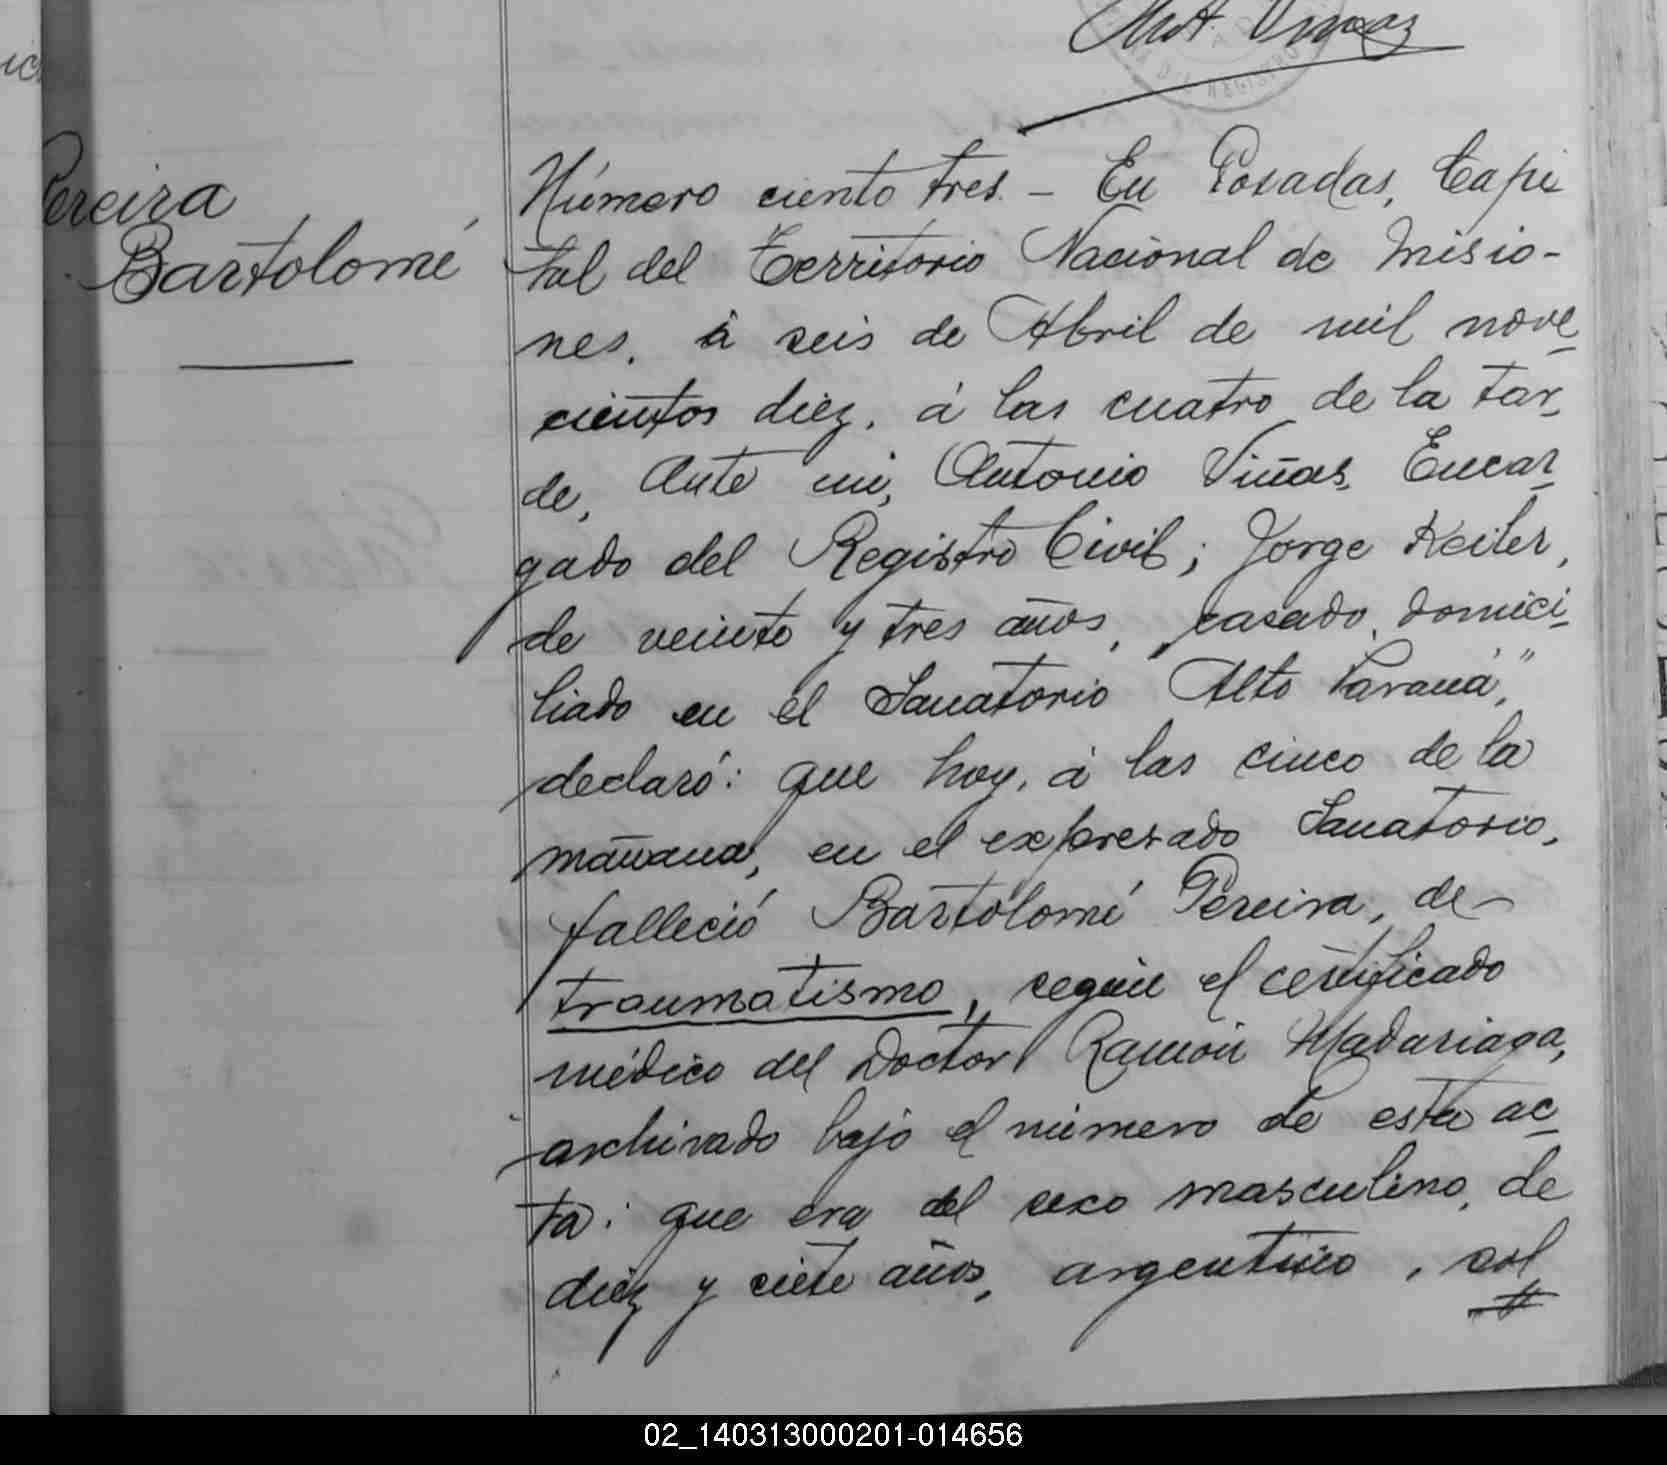 Ant. Viñas
Pereira
Bartolomé
Número ciento tres. - En Posadas, Capi
tal del Territorio Nacional de Misio-
nes, á seis de Abril de mil nove
cientos diez, á las cuatro de la tar
de, Ante mi, Antonio Viñas, Encar
gado del Registro Civil; Jorge Keiler,
de veinte y tres años, casado, domici
liado en el Sanatorio Alto Paraná",
declaró: que hoy, á las cinco de la
mañana, en el expresado Sanatorio,
falleció Bartolomé Pereira, de
traumatismo, según el certificado
médico del Doctor Ramón Madariaga,
archivado bajo el número de esta ac
ta: que era del sexo masculino, de
diez y siete años, argentino, sol
02_140313000201-014656